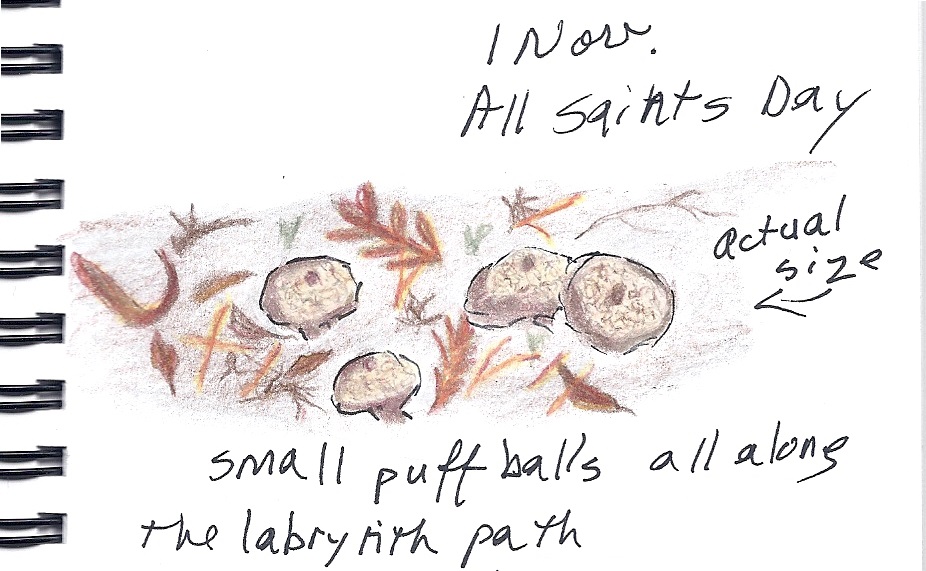 1 Nov.
All Saints Day
actual
size
small puff balls all along
the labryrith path